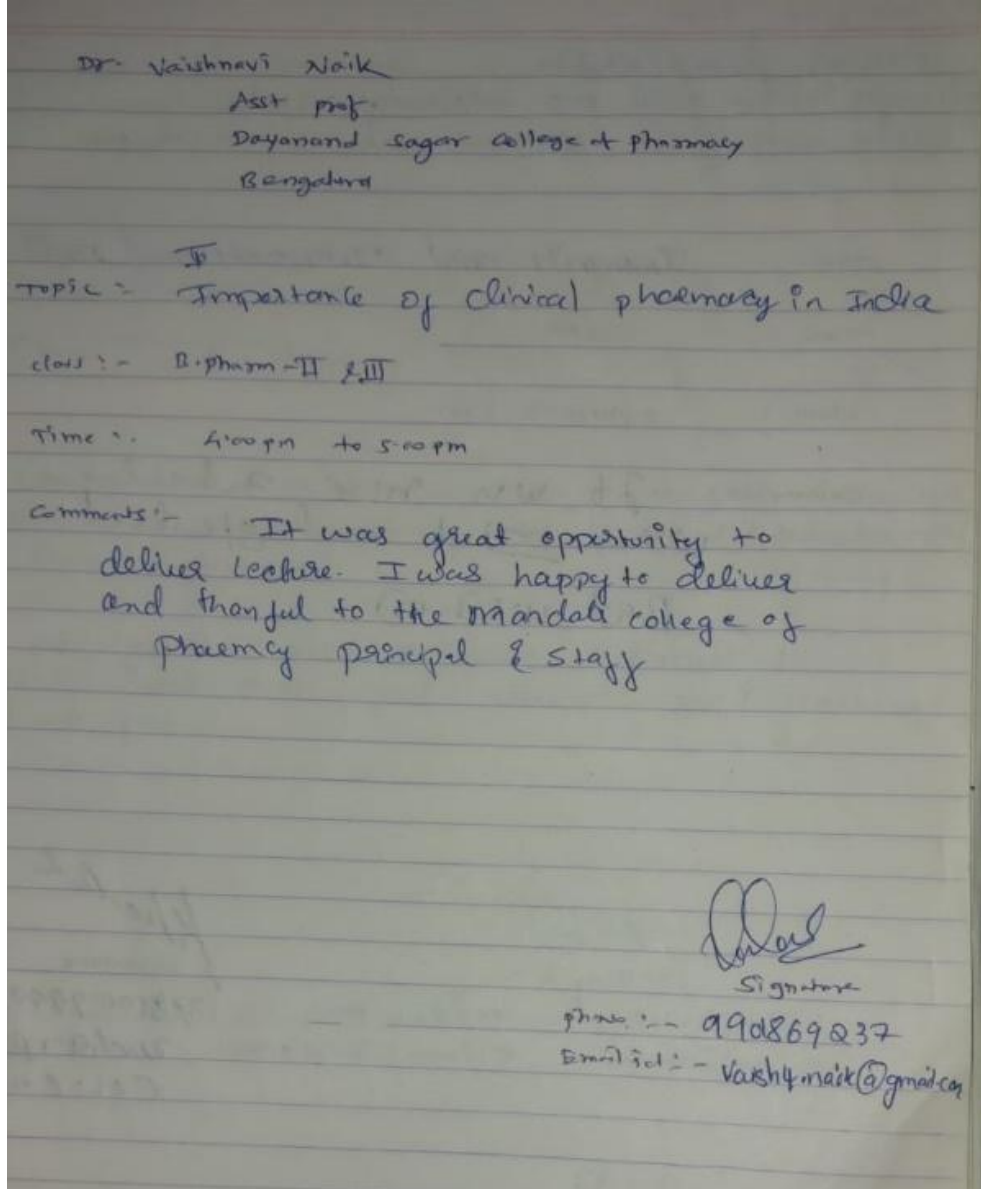 Dr. Vaishnavi Naik
Asst prof.
Dayanand sagar college of pharmacy
Bengaluru
Topic :- Importance of clinical phaemacy in India
class :- B.pharm - II & III
Time :. 4:00 pm to 5:00 pm
Comments :- It was great oppurtunity to
deliver Lecture. I was happy to deliver
and thanful to the Mandali college of
phaemcy principal & staff
Signature
phone :-
Email id :- Vaishy.naik@gmail.com